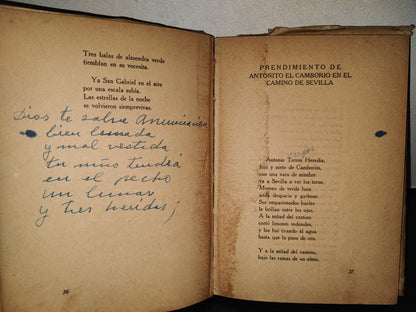 Tres balas de almendra verde
tiemblan en su vocesita.
Ya San Gabriel en el aire
por una escala subía.
Las estrellas de la noche
se volvieron siemprevivas.
Dios te salve Anunciación
bien lunada
y mal vestida
tu niño tendrá
en el pecho
un lunar
y tres heridas;
26
PRENDIMIENTO DE
ANTOÑITO EL CAMBORIO EN EL
CAMINO DE SEVILLA
Antonio Torres Heredia,
hijo y nieto de Camborios,
con una vara de mimbre
va a Sevilla a ver los toros.
Moreno de verde luna
anda despacio y garboso.
Sus empavonados bucles
le brillan entre los ojos.
A la mitad del camino
cortó limones redondos,
y los fué tirando al agua
hasta que la puso de oro.
Y a la mitad del camino,
bajo las ramas de un olmo,
27